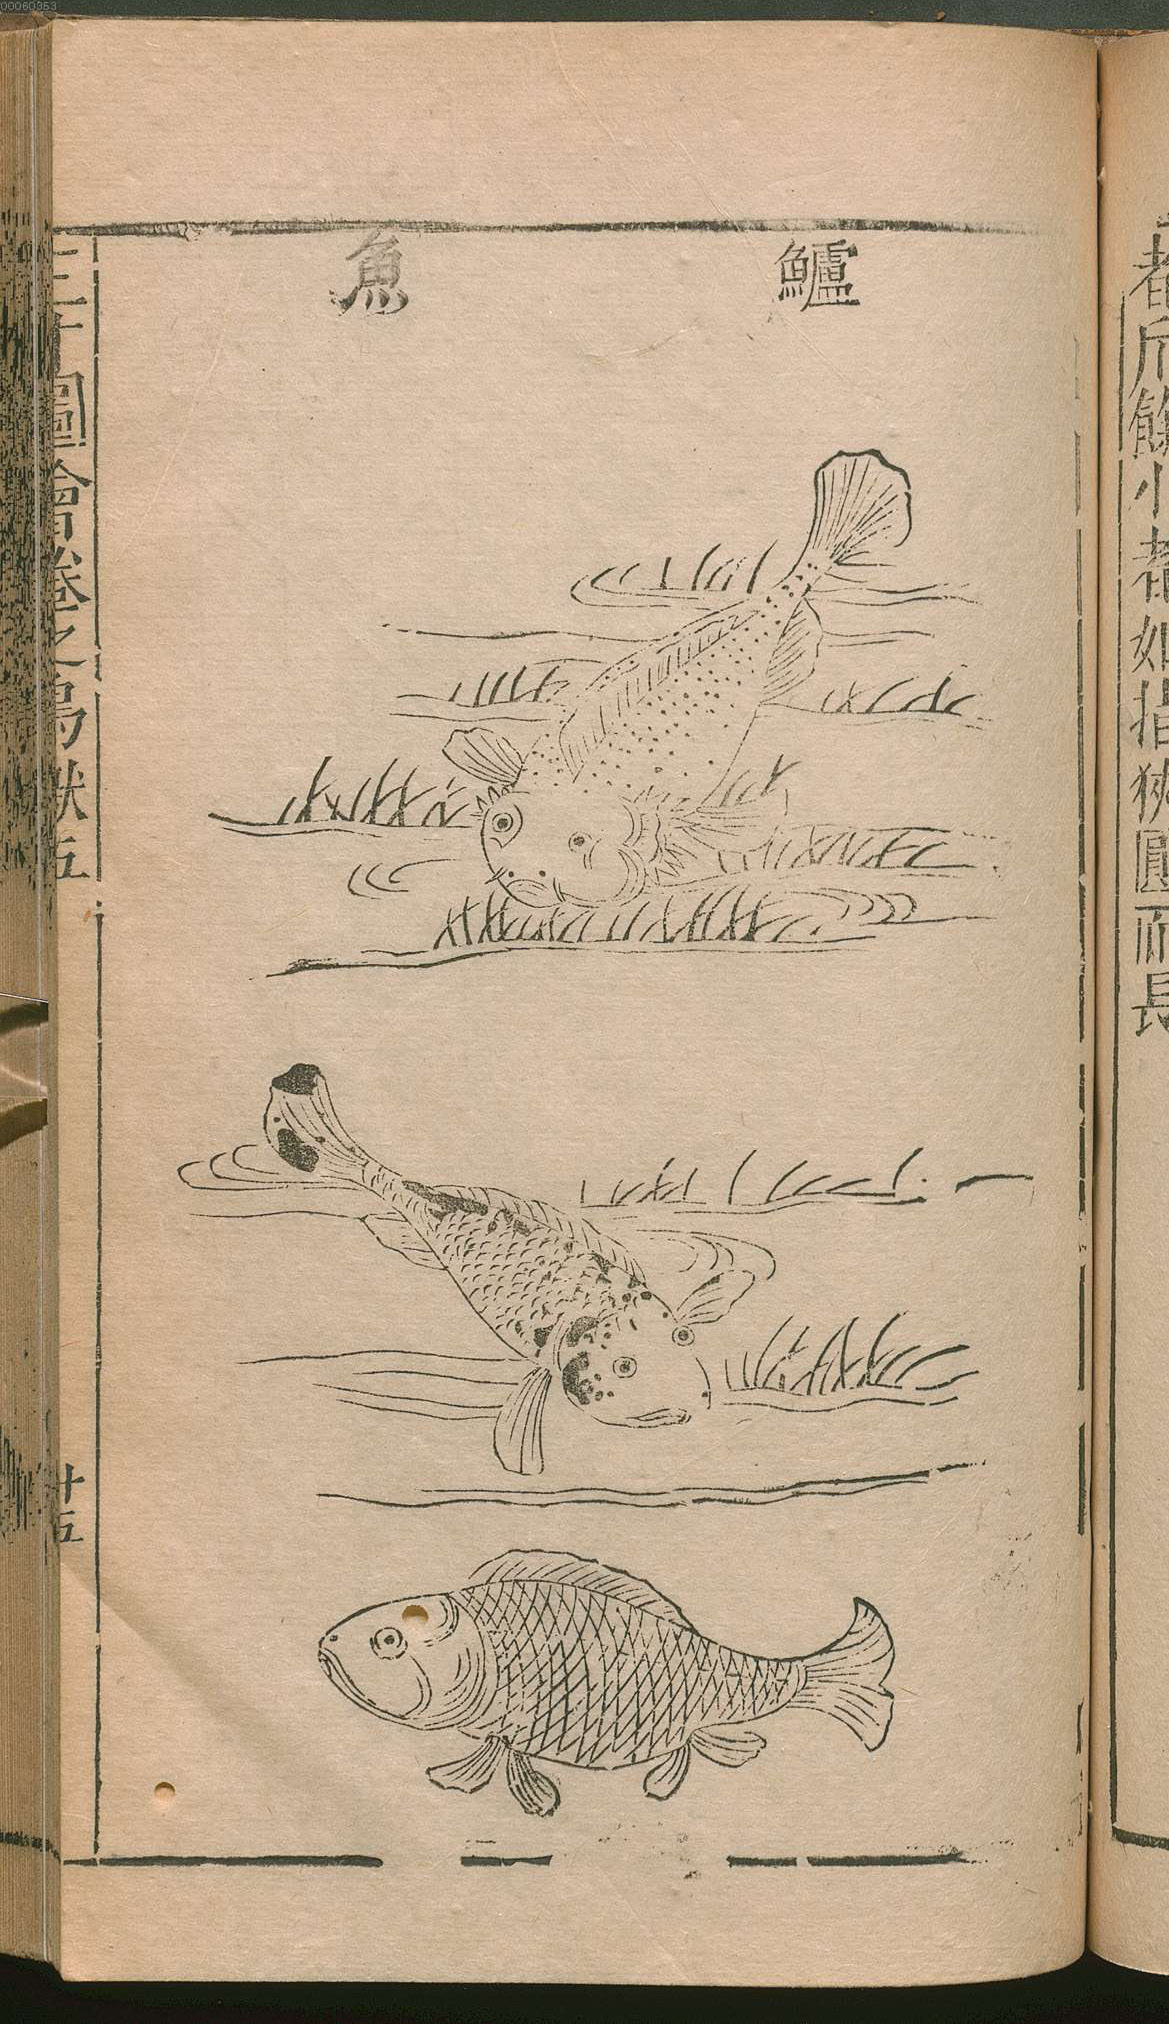 者斤餘小者如指狹圓而長
鱸魚
三才圖會卷之鳥獸五
十五
00060353